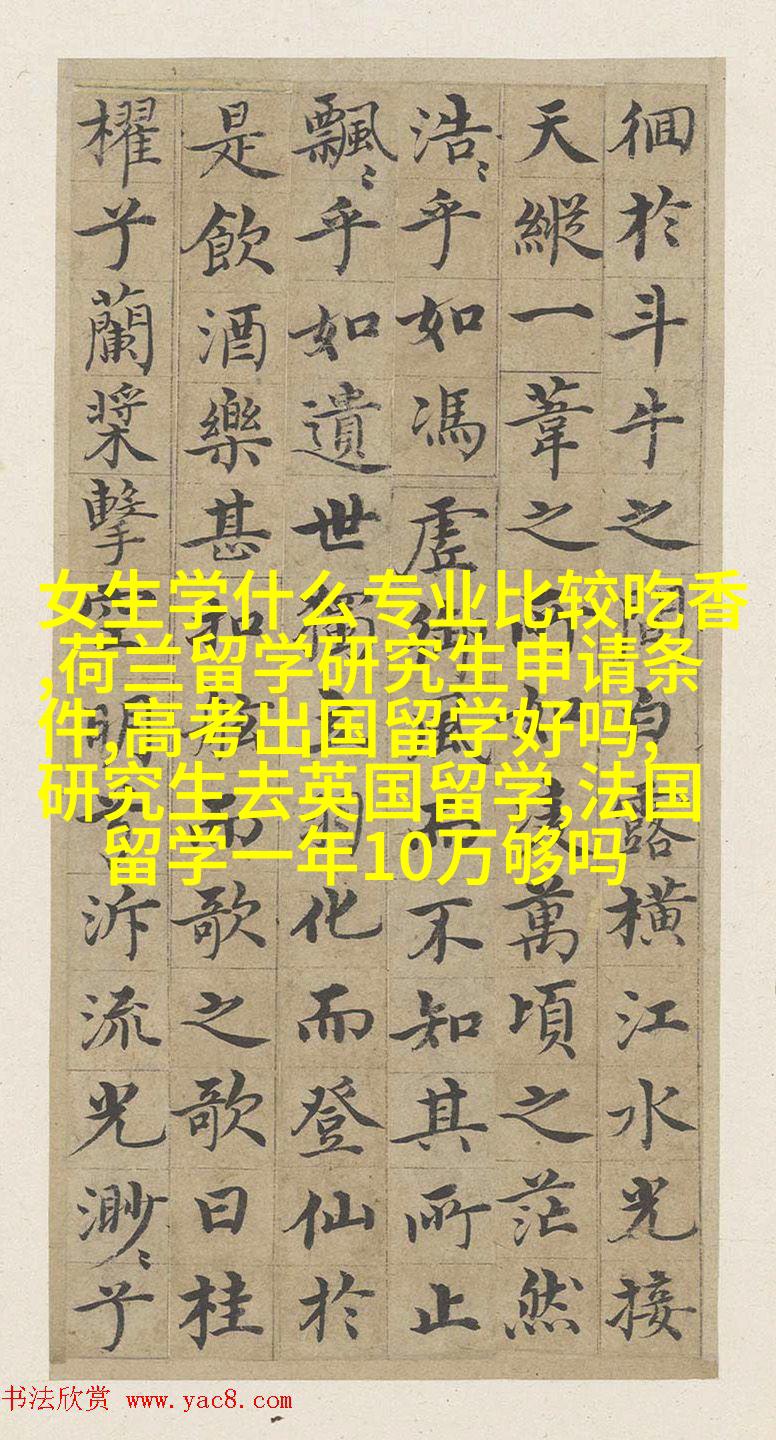 徊於斗牛之間白露橫江水光接
天縱一葦之所如凌萬頃之茫然
浩〻乎如馮虛御風而不知其所止
飄〻乎如遺世獨立羽化而登仙於
是飲酒樂甚扣舷而歌之歌曰桂
櫂兮蘭槳擊空明兮泝流光渺〻兮
女生学什么专业比较吃香
,荷兰留学研究生申请条
件,高考出国留学好吗,
研究生去英国留学,法国
留学一年10万够吗
书法欣赏 www.yac8.com